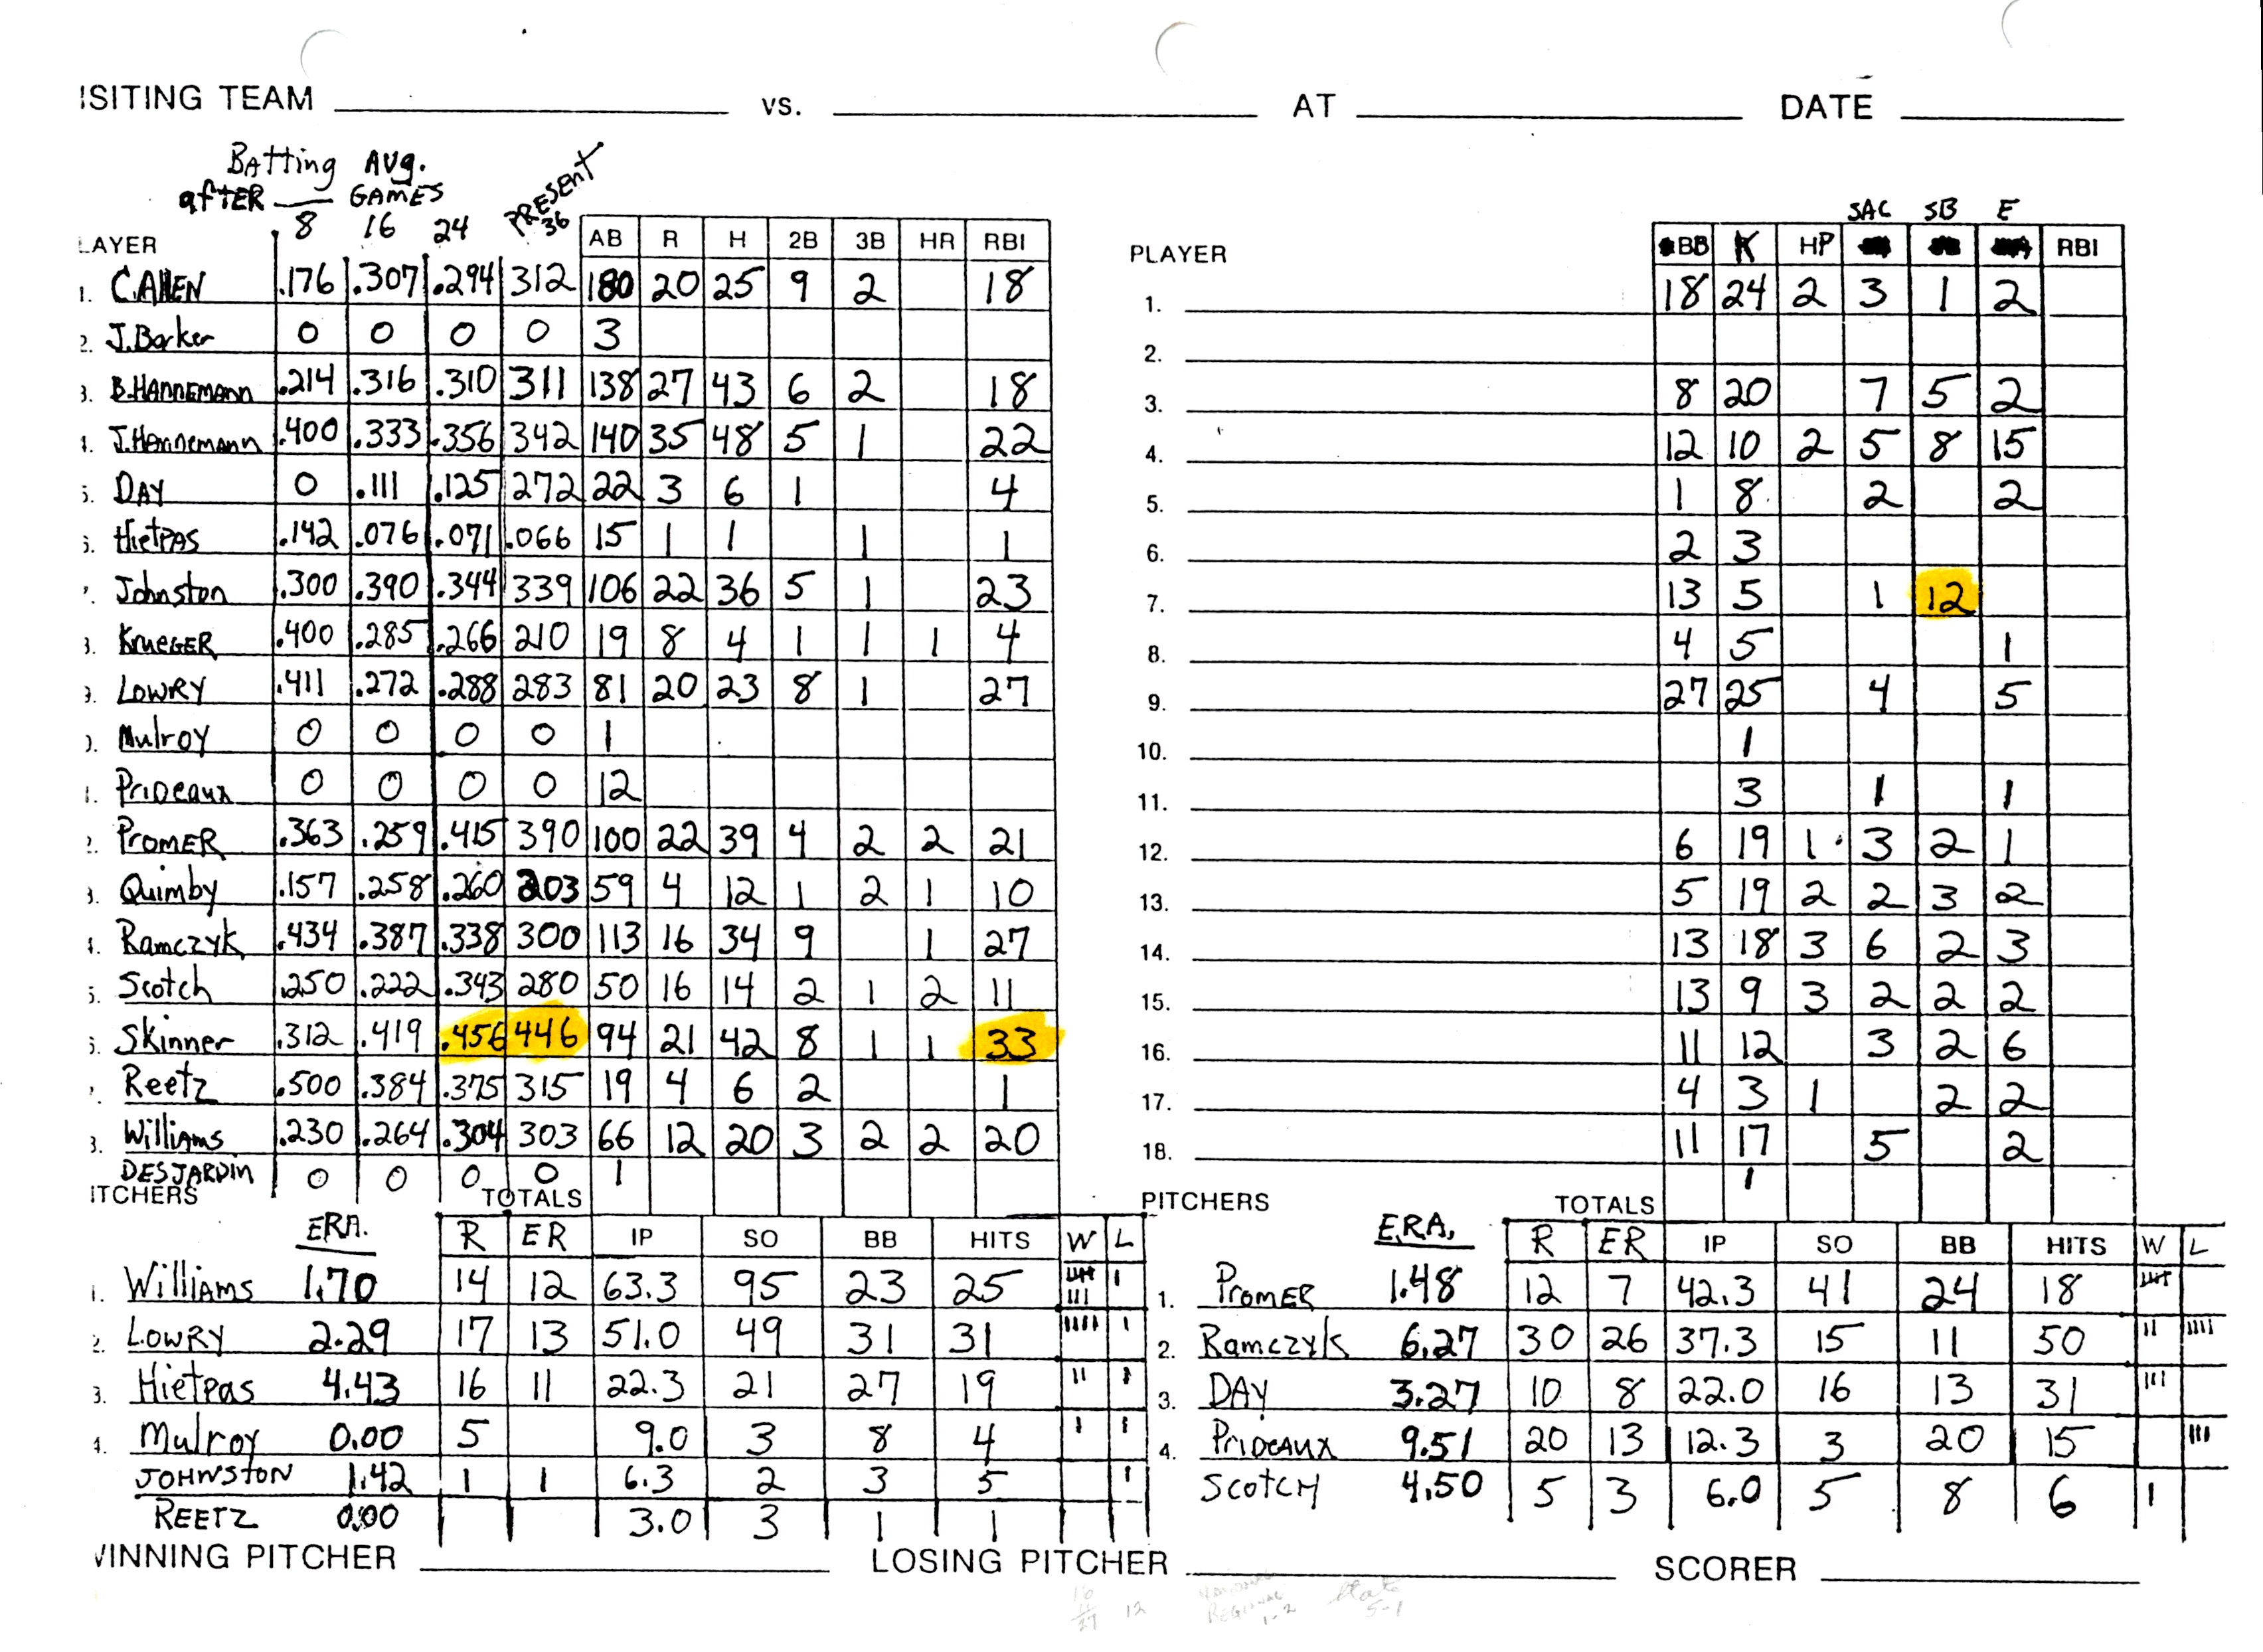 ISITING TEAM ____ VS. ____ AT ____ DATE ____
Batting Avg.
after ____ GAMES
8 16 24 PRESENT 36
SAC SB E
LAYER AB R H 2B 3B HR RBI
PLAYER BB K HP RBI
1. C.AllEN .176 .307 .294 312 180 20 25 9 2 18
1. 18 24 2 3 1 2
2. J.Barker 0 0 0 0 3
2.
3. B.HANNEMANN .214 .316 .310 311 138 27 43 6 2 18
3. 8 20 7 5 2
4. J.Hannemann .400 .333 .356 342 140 35 48 5 1 22
4. 12 10 2 5 8 15
5. DAY 0 .111 .125 272 22 3 6 1 4
5. 1 8 2 2
6. HietPAS .142 .076 .071 .066 15 1 1 1 1
6. 2 3
7. Johnston .300 .390 .344 339 106 22 36 5 1 23
7. 13 5 1 12
8. KRUEGER .400 .285 .266 210 19 8 4 1 1 1 4
8. 4 5 1
9. LOWRY .411 .272 .288 283 81 20 23 8 1 27
9. 27 25 4 5
0. Mulroy 0 0 0 0 1
10. 1
1. Prideaux 0 0 0 0 12
11. 3 1 1
2. PROMER .363 .259 .415 390 100 22 39 4 2 2 21
12. 6 19 1 3 2 1
3. Quimby .157 .258 .260 203 59 4 12 1 2 1 10
13. 5 19 2 2 3 2
4. Ramczyk .434 .387 .338 300 113 16 34 9 1 27
14. 13 18 3 6 2 3
5. Scotch .250 .222 .343 280 50 16 14 2 1 2 11
15. 13 9 3 2 2 2
6. Skinner .312 .419 .456 446 94 21 42 8 1 1 33
16. 11 12 3 2 6
7. Reetz .500 .384 .375 315 19 4 6 2 1
17. 4 3 1 2 2
8. Williams .230 .264 .304 303 66 12 20 3 2 2 20
18. 11 17 5 2
DESJARDIN 0 0 0 0 1
1
ITCHERS TOTALS
PITCHERS TOTALS
ERA. R ER IP SO BB HITS W L
E.R.A. R ER IP SO BB HITS W L
1. Williams 1.70 14 12 63.3 95 23 25 |||| ||| |
1. PROMER 1.48 12 7 42.3 41 24 18 ||||
2. LOWRY 2.29 17 13 51.0 49 31 31 ||||| |
2. Ramczyk 6.27 30 26 37.3 15 11 50 || ||||
3. Hietpas 4.43 16 11 22.3 21 27 19 || |
3. DAY 3.27 10 8 22.0 16 13 31 |||
4. Mulroy 0.00 5 9.0 3 8 4 | |
4. PRIDEAUX 9.51 20 13 12.3 3 20 15 |||
JOHNSTON 1.42 1 1 6.3 2 3 5 |
SCOTCH 4.50 5 3 6.0 5 8 6 |
REETZ 0.00 3.0 3 1 1
VINNING PITCHER ____ LOSING PITCHER ____ SCORER ____
12 REGIONAL 1-2 State 5-1